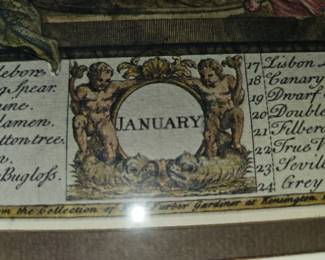 lebore
g. Spear.
ine.
lamen.
tton tree.
Bugloss.
JANUARY
17 Lisbon
18 Canary
19 Dwarf
20 Double
21 Filber
22 True
23 Sevill
24 Grey
the Collection of Furber Gardiner at Kensington